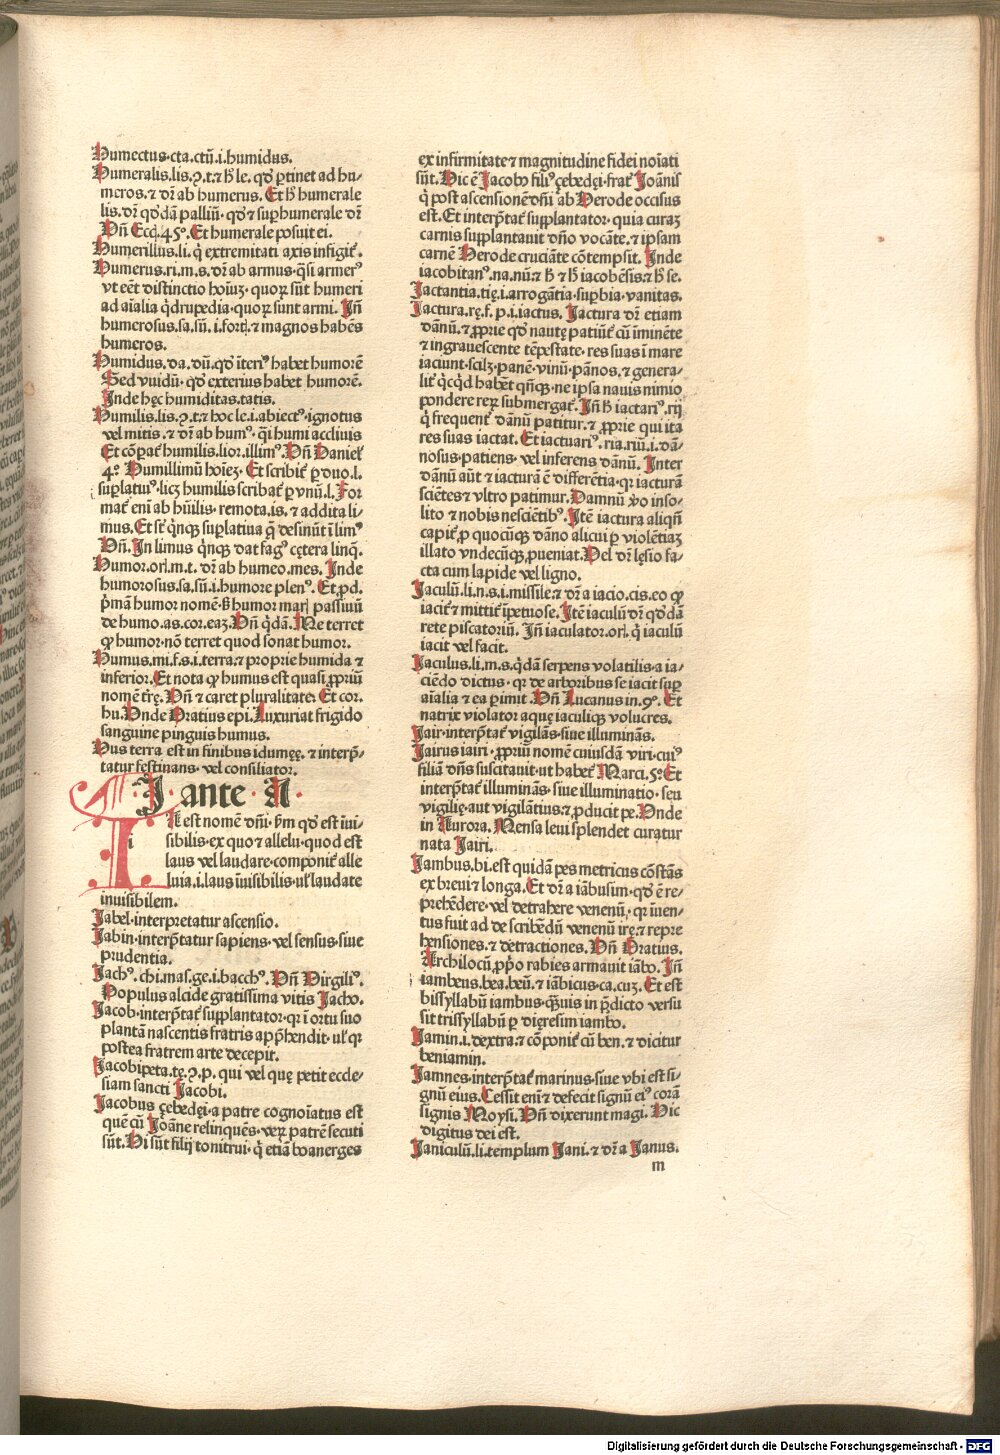 Humectus.cta.ctū.i.humidus.
Humeralis.lis.ɔ.t.⁊ h̄ le. qd̓ ꝑtinet ad hu-
meros.⁊ dr̄ ab humerus. Et h̄ humerale
lis.dr̄ qd̓dā palliū. qd̓ ⁊ suꝑhumerale dr̄
Vn̄ Ecc̄.45°. Et humerale posuit ei.
Humerillus.li.q̇ extremitati axis infigit᷑.
Humerus.ri.m.s.dr̄ ab armus.q̄si armerꝰ
vt eēt distinctio hoīuꝫ. quoꝝ sūt humeri
ad aīalia q̇drupedia.quoꝝ sunt armi. In̄
humerosus.sa.sū.i.fort᷑.⁊ magnos habēs
humeros.
Humidus.da.dū.qd̓ īteriꝰ habet humorē
Sed vuidū. qd̓ exterius habet humorē.
Inde hęc humiditas.tatis.
Humilis.lis.ɔ.t.⁊ hoc le.i.abiectꝰ.ignotus
vel mitis.⁊ dr̄ ab humꝰ. q̄i humi accliuis
Et cōpat᷑ humilis.lior.illimꝰ. Vn̄ Daniel᷑
4°. Humillimū hoīeꝫ. Et scribit᷑ ꝑ duo.l.
suꝑlatiuꝰ.licꝫ humilis scribat᷑ ꝑ vnū.l. For
mat᷑ eni ab hūilis.remota.is.⁊ addita li-
mus. Et st̄ q̇nqꝫ suꝑlatiua q̄ desinūt ī limꝰ
Vn̄. In limus q̇nqꝫ dat fagꝰ cętera linq̄.
Humor.orꝭ.m.t.dr̄ ab humeo.mes. Inde
humorosus.sa.sū.i.humore plenꝰ. Et ꝓd.
pͥmā humor nomē.s̄ humor marꝭ passiuū
de humo.as.cor.eaꝫ. Vn̄ q̇dā. Me terret
ꝙ humor.nō terret quod sonat humor.
Humus.mi.f.s.i.terra.⁊ proprie humida ⁊
inferior. Et nota ꝙ humus est quasi ꝓpriū
nomē tr̄ę. Vn̄ ⁊ caret pluralitate. Et cor.
hu. Vnde Oratius epi. Luxuriat frigido
sanguine pinguis humus.
Hus terra est in finibus idumęę.⁊ interp̄-
tatur festinans.vel consiliator.
I.ante.A.
i
IA est nomē dn̄i. sm̄ qd̓ est īui-
sibilis.ex quo ⁊ allelu.quod est
laus vel laudare.componit᷑ alle
luia.i.laus īuisibilis.ul᷑ laudate
inuisibilem.
Iabel.interpretatur ascensio.
Iabin.interp̄tatur sapiens.vel sensus.siue
prudentia.
Iachꝰ.chi.mas.ge.i.bacchꝰ. Vn̄ Virgiliꝰ.
Populus alcide gratissima vitis Iacho.
Iacob.interp̄tat᷑ suꝑplantator.qr ī ortu suo
plantā nascentis fratris app̄hendit.ul᷑ qr
postea fratrem arte decepit.
Iacobipeta.tę.ɔ.p. qui vel quę petit eccle-
siam sancti Iacobi.
Iacobus çebedęi.a patre cognoīatus est
quē cū Ioāne relinquēs.veꝝ patrē secuti
sūt. Hi sūt filij tonitrui.q̇ etiā boanerges
ex infirmitate ⁊ magnitudine fidei noīati
sūt. Hic ē Iacobꝰ filiꝰ çebedęi.frat᷑ Ioānis
q̇ post ascensionē dn̄i ab Herode occisus
est. Et interp̄tat᷑ supplantator.quia curaꝫ
carnis supplantauit dn̄o vocāte.⁊ ipsam
carnē Herode cruciāte cōtempsit. Inde
iacobitanꝰ.na.nū.⁊ h̄ ⁊ h̄ iacobēsis.⁊ h̄ se.
Iactantia.tię.i.arrogātia.suꝑbia.vanitas.
Iactura.rę.f.p.i.iactus. Iactura dr̄ etiam
dānū.⁊ ꝓprie qd̓ nautę patiūt᷑ cū īminēte
⁊ ingrauescente tēpestate.res suas ī mare
iaciunt.scilꝫ.panē.vinū.pānos.⁊ genera-
lit᷑ q̇cq̇d habēt q̄nqꝫ.ne ipsa nauis nimio
pondere reꝝ submergat᷑. In̄ h̄ iactariꝰ.rij
q̇ frequent᷑ dānū patitur.⁊ ꝓprie qui ita
res suas iactat. Et iactuariꝰ.ria.riū.i.dā-
nosus.patiens.vel inferens dānū. Inter
dānū aūt ⁊ iacturā ē differētia.qr iacturā
sciētes ⁊ vltro patimur. Damnū v̓o inso-
lito ⁊ nobis nesciētibꝰ. Itē iactura aliqn̄
capit᷑ ꝓ quocūqꝫ dāno alicui ꝑ violētiaꝫ
illato vndecūqꝫ ꝓueniat. Vel dr̄ lęsio fa-
cta cum lapide vel ligno.
Iaculū.li.n.s.i.missile.⁊ dr̄ a iacio.cis.eo ꝙ
iacit᷑ ⁊ mittit᷑ īpetuose. Itē iaculū dr̄ qd̓dā
rete piscatoriū. In̄ iaculator.orꝭ.q̇ iaculū
iacit vel facit.
Iaculus.li.m.s.q̇dā serpens volatilis.a ia-
ciēdo dictus.qr de arboribus se iacit suꝑ
aīalia ⁊ ea ꝑimit. Vn̄ Lucanus in.9°. Et
natrix violator aquę iaculiqꝫ volucres.
Iair.interp̄tat᷑ vigilās.siue illuminās.
Iairus iairi.ꝓpriū nomē cuiusdā viri.cuiꝰ
filiā dn̄s suscitauit.ut habet᷑ Marci.5°. Et
interp̄tat᷑ illuminās.siue illuminatio.seu
vigilię.aut vigilātius.⁊ ꝓducit pe. Vnde
in Aurora. Mensa leui splendet curatur
nata Iairi.
Iambus.bi.est quidā pes metricus cōstās
ex breui ⁊ longa. Et dr̄ a iābusim.qd̓ ē re-
prehēdere.vel detrahere venenū.qr īuen-
tus fuit ad describēdū venenū irę.⁊ repre
hensiones.⁊ detractiones. Vn̄ Oratius.
Archilocū ꝓpͥo rabies armauit iābo. In̄
iambens.bea.beū.⁊ iābicus.ca.cuꝫ. Et est
bissyllabū iambus.q̄uis in p̄dicto versu
sit trissyllabū ꝑ dięresim iambo.
Iamin.i.dextra.⁊ cōponit᷑ cū ben.⁊ dicitur
beniamin.
Iamnes.interp̄tat᷑ marinus.siue vbi est si-
gnū eius. Cessit eni ⁊ defecit signū eiꝰ corā
signis Moysi. Vn̄ dixerunt magi. Hic
digitus dei est.
Ianiculū.li.templum Iani.⁊ dr̄ a Ianus.
m
Digitalisierung gefördert durch die Deutsche Forschungsgemeinschaft - DFG